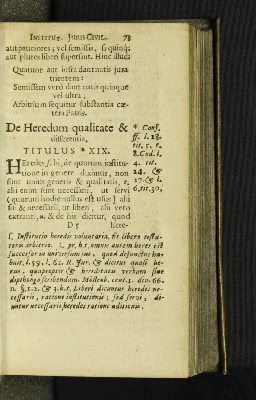 INSTITUT. JURIS CIVIL. 73
aut pauciores; vel semissis, si quinq;
aut plures liberi supersint. Hinc illud:
Quatuor aut infra dant natis jura
trientena:
Semissem verò dant natis quinque
vel ultra,
Arbitrium sequitur substantia cæ-
tera Patris.
De Heredum qualitate &
differentia.
TITULUS * XIX.
* Conf.
ff. l. 28.
tit. 5. &
8. Cod. l.
4. tit.
24. &
27. & l.
6. tit. 30.
Heredes f. hi, de quorum institu-
tione in genere diximus, non
sunt unius generis & qualitatis,
alii enim sunt necessarii, ut servi
(quorum hodie nullus est usus) alii
sui & necessarii, ut liberi, alii verò
extranei, & de his dicitur, quod
D 5 here-
f. Institutio heredis voluntaria, & libero testa-
toris arbitrio. pr. h. t. omnis autem heres est
successor in universum jus, quod defunctus ha-
buit, l. 59. l. 62. R. Jur. & dicitur quasi he-
rus, quapropter & hereditatis verbum sine
diphthongo scribendum. Möllenb. cent. 1. div. 66.
n. 5. 1. 2. & 3. h. t. Liberi dicuntur heredes ne-
cessarii, ratione institutionis; sed servi, di-
cuntur necessarii heredes ratione aditionis.